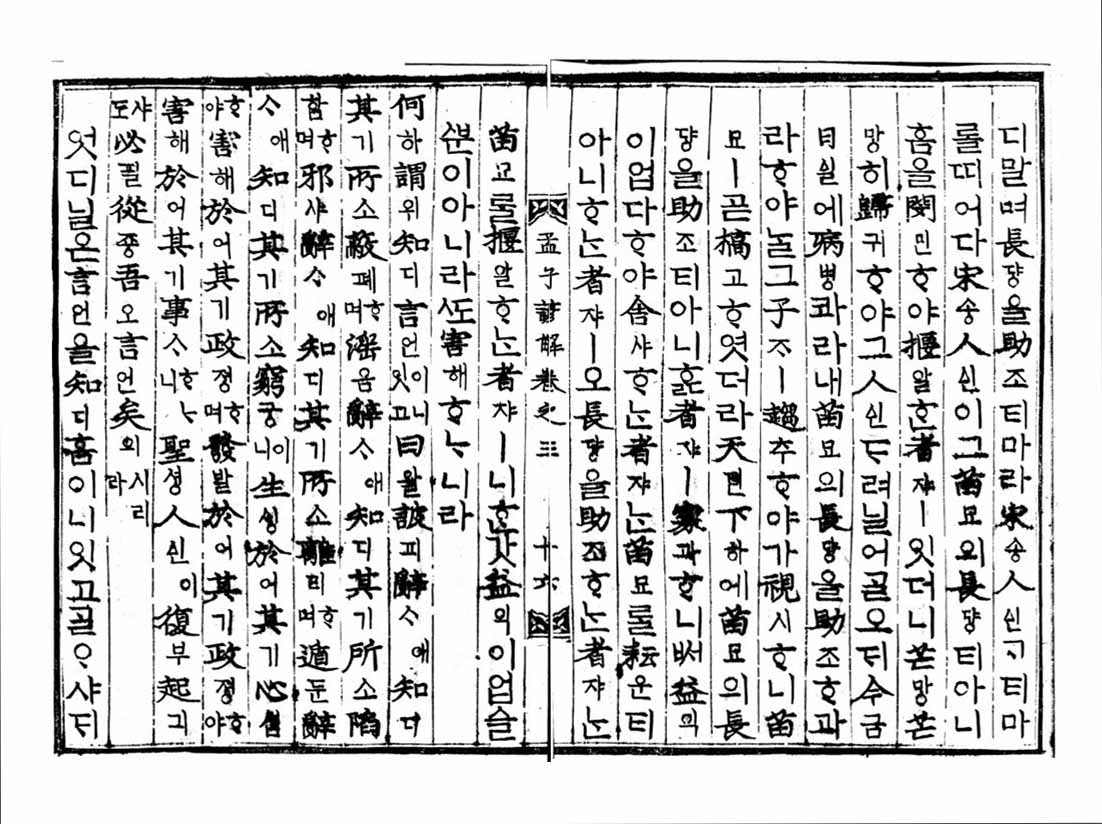 디말며長댱을助조티마라宋송人신ᄀᆞ티마
롤띠어다宋송人신이그苗묘의長댱티아니
홈을閔민ᄒᆞ야揠알ᄒᆞᆫ者쟈ㅣ잇더니芒망芒
망히歸귀ᄒᆞ야그人신ᄃᆞ려닐어ᄀᆞᆯ오ᄃᆡ今금
日실에病병과라내苗묘의長댱을助조ᄒᆞ과
라ᄒᆞ야ᄂᆞᆯ그子ᄌᆞㅣ趨추ᄒᆞ야가視시ᄒᆞ니苗
묘ㅣ곧槁고ᄒᆞ엿더라天텬下하에苗묘의長
댱을助조티아니ᄒᆞᆯ者쟈ㅣ寡과ᄒᆞ니ᄡᅥ益익
이업다ᄒᆞ야舍샤ᄒᆞᄂᆞᆫ者쟈ᄂᆞᆫ苗묘ᄅᆞᆯ耘운티
아니ᄒᆞᄂᆞᆫ者쟈ㅣ오長댱을助조ᄒᆞᄂᆞᆫ者쟈ᄂᆞᆫ
孟子諺解卷之三 十六
苗묘ᄅᆞᆯ揠알ᄒᆞᄂᆞᆫ者쟈ㅣ니ᄒᆞᆫ갓益익이업슬
ᄲᅮᆫ이아니라ᄯᅩ害해ᄒᆞᄂᆞ니라
何하謂위知디言언이니잇고曰왈詖피辭ᄉᆞ애知디
其기所소蔽폐ᄒᆞ며淫음辭ᄉᆞ애知디其기所소陷
함ᄒᆞ며邪샤辭ᄉᆞ애知디其기所소離리ᄒᆞ며遁둔辭
ᄉᆞ애知디其기所소窮궁이니生ᄉᆡᆼ於어其기心심
ᄒᆞ야害해於어其기政졍ᄒᆞ며發발於어其기政졍ᄒᆞ야
害해於어其기事ᄉᆞᄒᆞᄂᆞ니聖셩人신이復부起긔
샤도必필從죵吾오言언矣의시리라
엇디닐온言언을知디홈이니잇고ᄀᆞᆯᄋᆞ샤ᄃᆡ